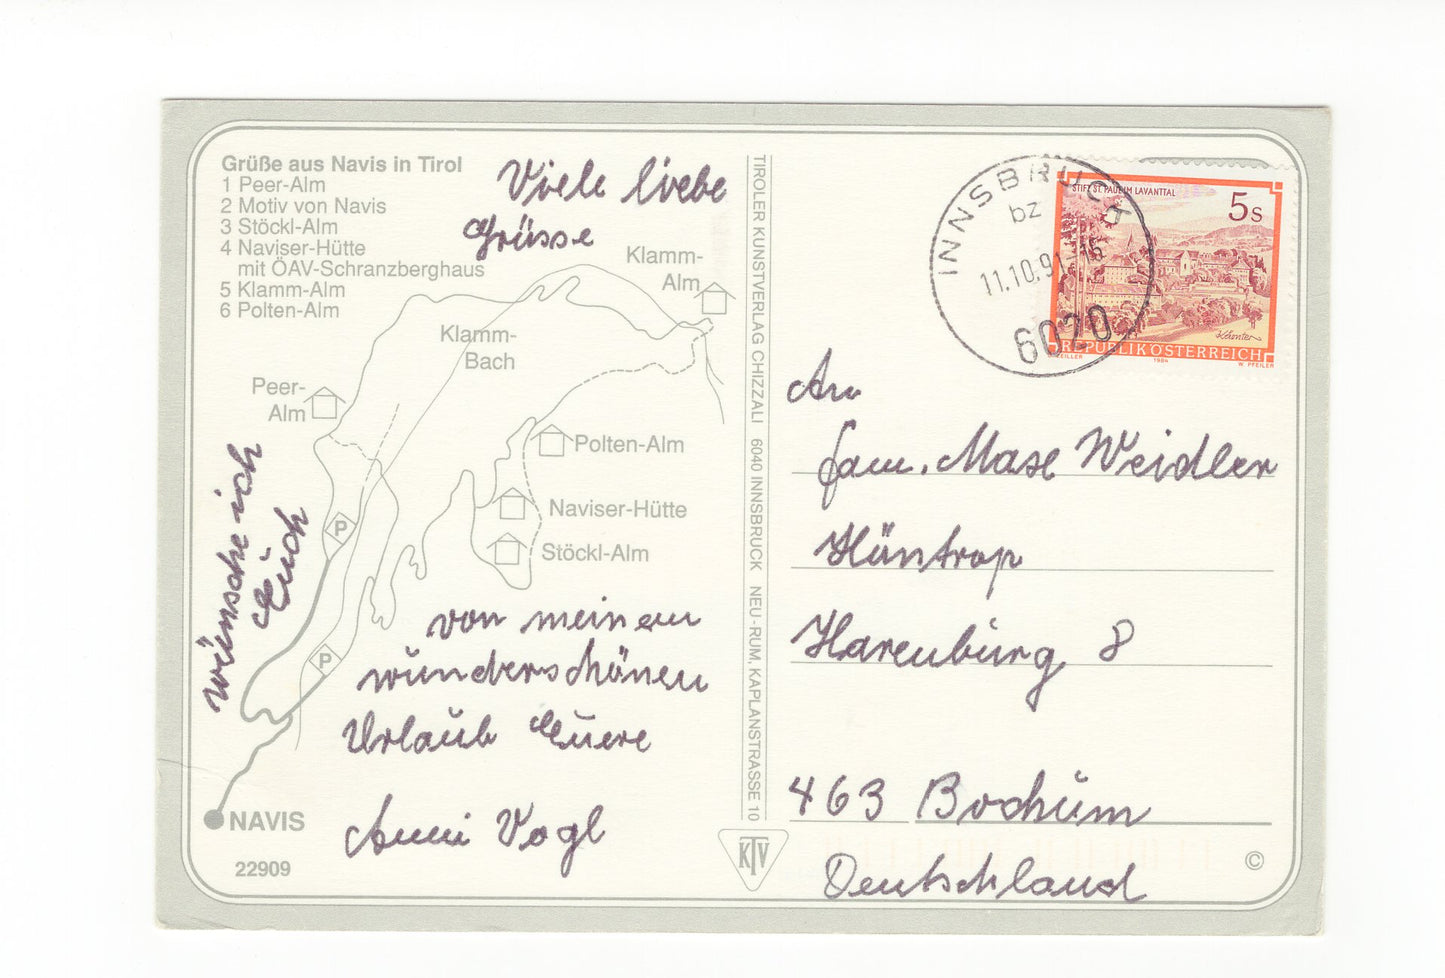 Grüße aus Navis in Tirol
1 Peer-Alm
2 Motiv von Navis
3 Stöckl-Alm
4 Naviser-Hütte
mit ÖAV-Schranzberghaus
5 Klamm-Alm
6 Polten-Alm
Viele liebe
Grüsse
Klamm-
Alm
Klamm-
Bach
Peer-
Alm
Polten-Alm
Naviser-Hütte
Stöckl-Alm
P
P
wünsche ich
Euch
von meinem
wunderschönen
Urlaub Euere
Anni Vogl
NAVIS
22909
TIROLER KUNSTVERLAG CHIZZALI 6040 INNSBRUCK NEU-RUM, KAPLANSTRASSE 10
KTV
INNSBRUCK
bz
11.10.91-16
6020
STIFT ST. PAUL IM LAVANTTAL
5s
REPUBLIK ÖSTERREICH
ZEILLER 1984 W. PFEILER
An
Fam. Max Weidler
Höntrop
Harenburg 8
463 Bochum
Deutschland
©